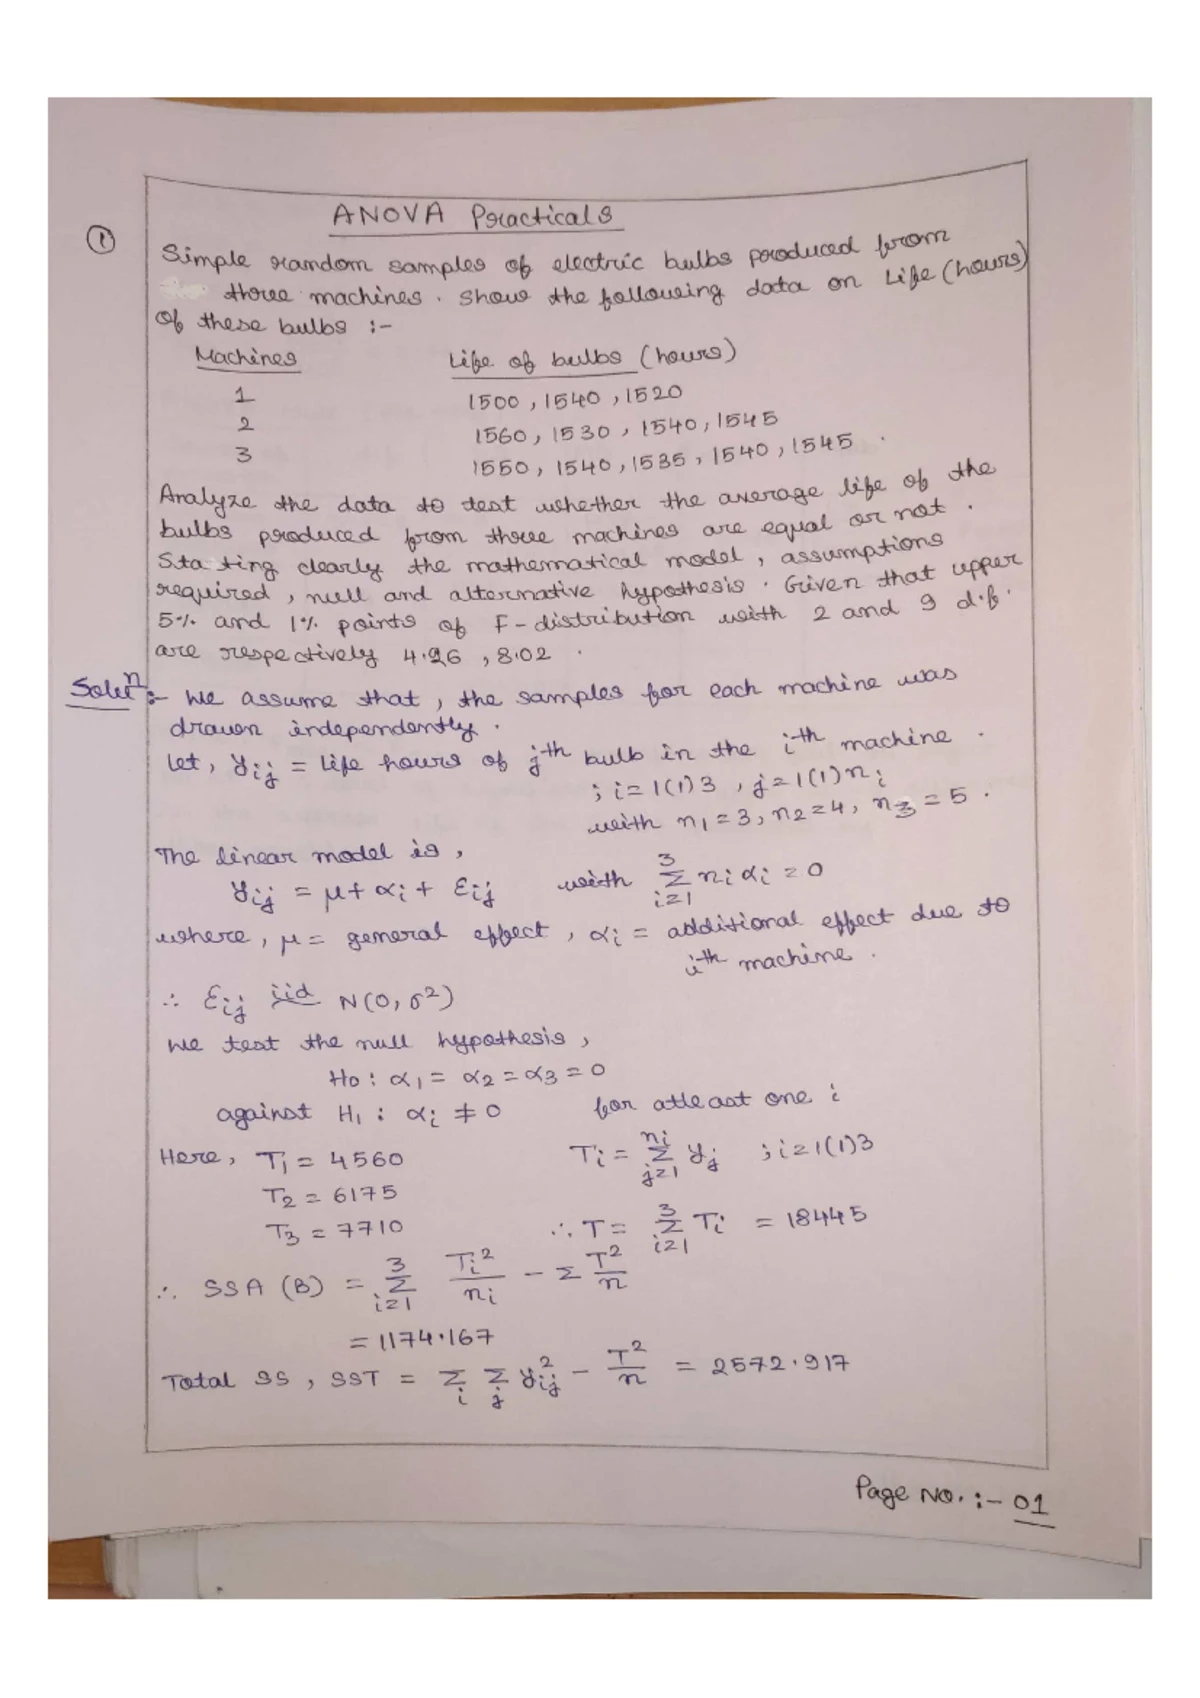 ANOVA Practicals
① Simple random samples of electric bulbs produced from
three machines. Show the following data on Life (hours)
of these bulbs :-
Machines Life of bulbs (hours)
1 1500, 1540, 1520
2 1560, 1530, 1540, 1545
3 1550, 1540, 1535, 1540, 1545.
Analyze the data to test whether the average life of the
bulbs produced from three machines are equal or not.
Stating clearly the mathematical model, assumptions
required, null and alternative hypothesis. Given that upper
5% and 1% points of F-distribution with 2 and 9 d.f.
are respectively 4.26, 8.02.
Soluⁿ :- We assume that, the samples for each machine was
drawn independently.
Let, yij = Life hours of jth bulb in the ith machine.
; i=1(1)3, j=1(1)ni
with n1=3, n2=4, n3=5.
The linear model is,
yij = μ+ αi + Ɛij with 3Σi=1 niαi=0
where, μ= general effect, αi = additional effect due to
ith machine.
∴ Ɛij iid N(0, σ²)
We test the null hypothesis,
Ho : α1 = α2 = α3 = 0
against H1 : αi ≠ 0 for atleast one i
Here, T1 = 4560 Ti = niΣj=1 yj ; i=1(1)3
T2 = 6175
T3 = 7710 ∴ T = 3Σi=1 Ti = 18445
∴ SSA (B) = 3Σi=1 Ti²/ni - Σ T²/n
= 1174.167
Total SS, SST = Σi Σj yij² - T²/n = 2572.917
Page No. :- 01